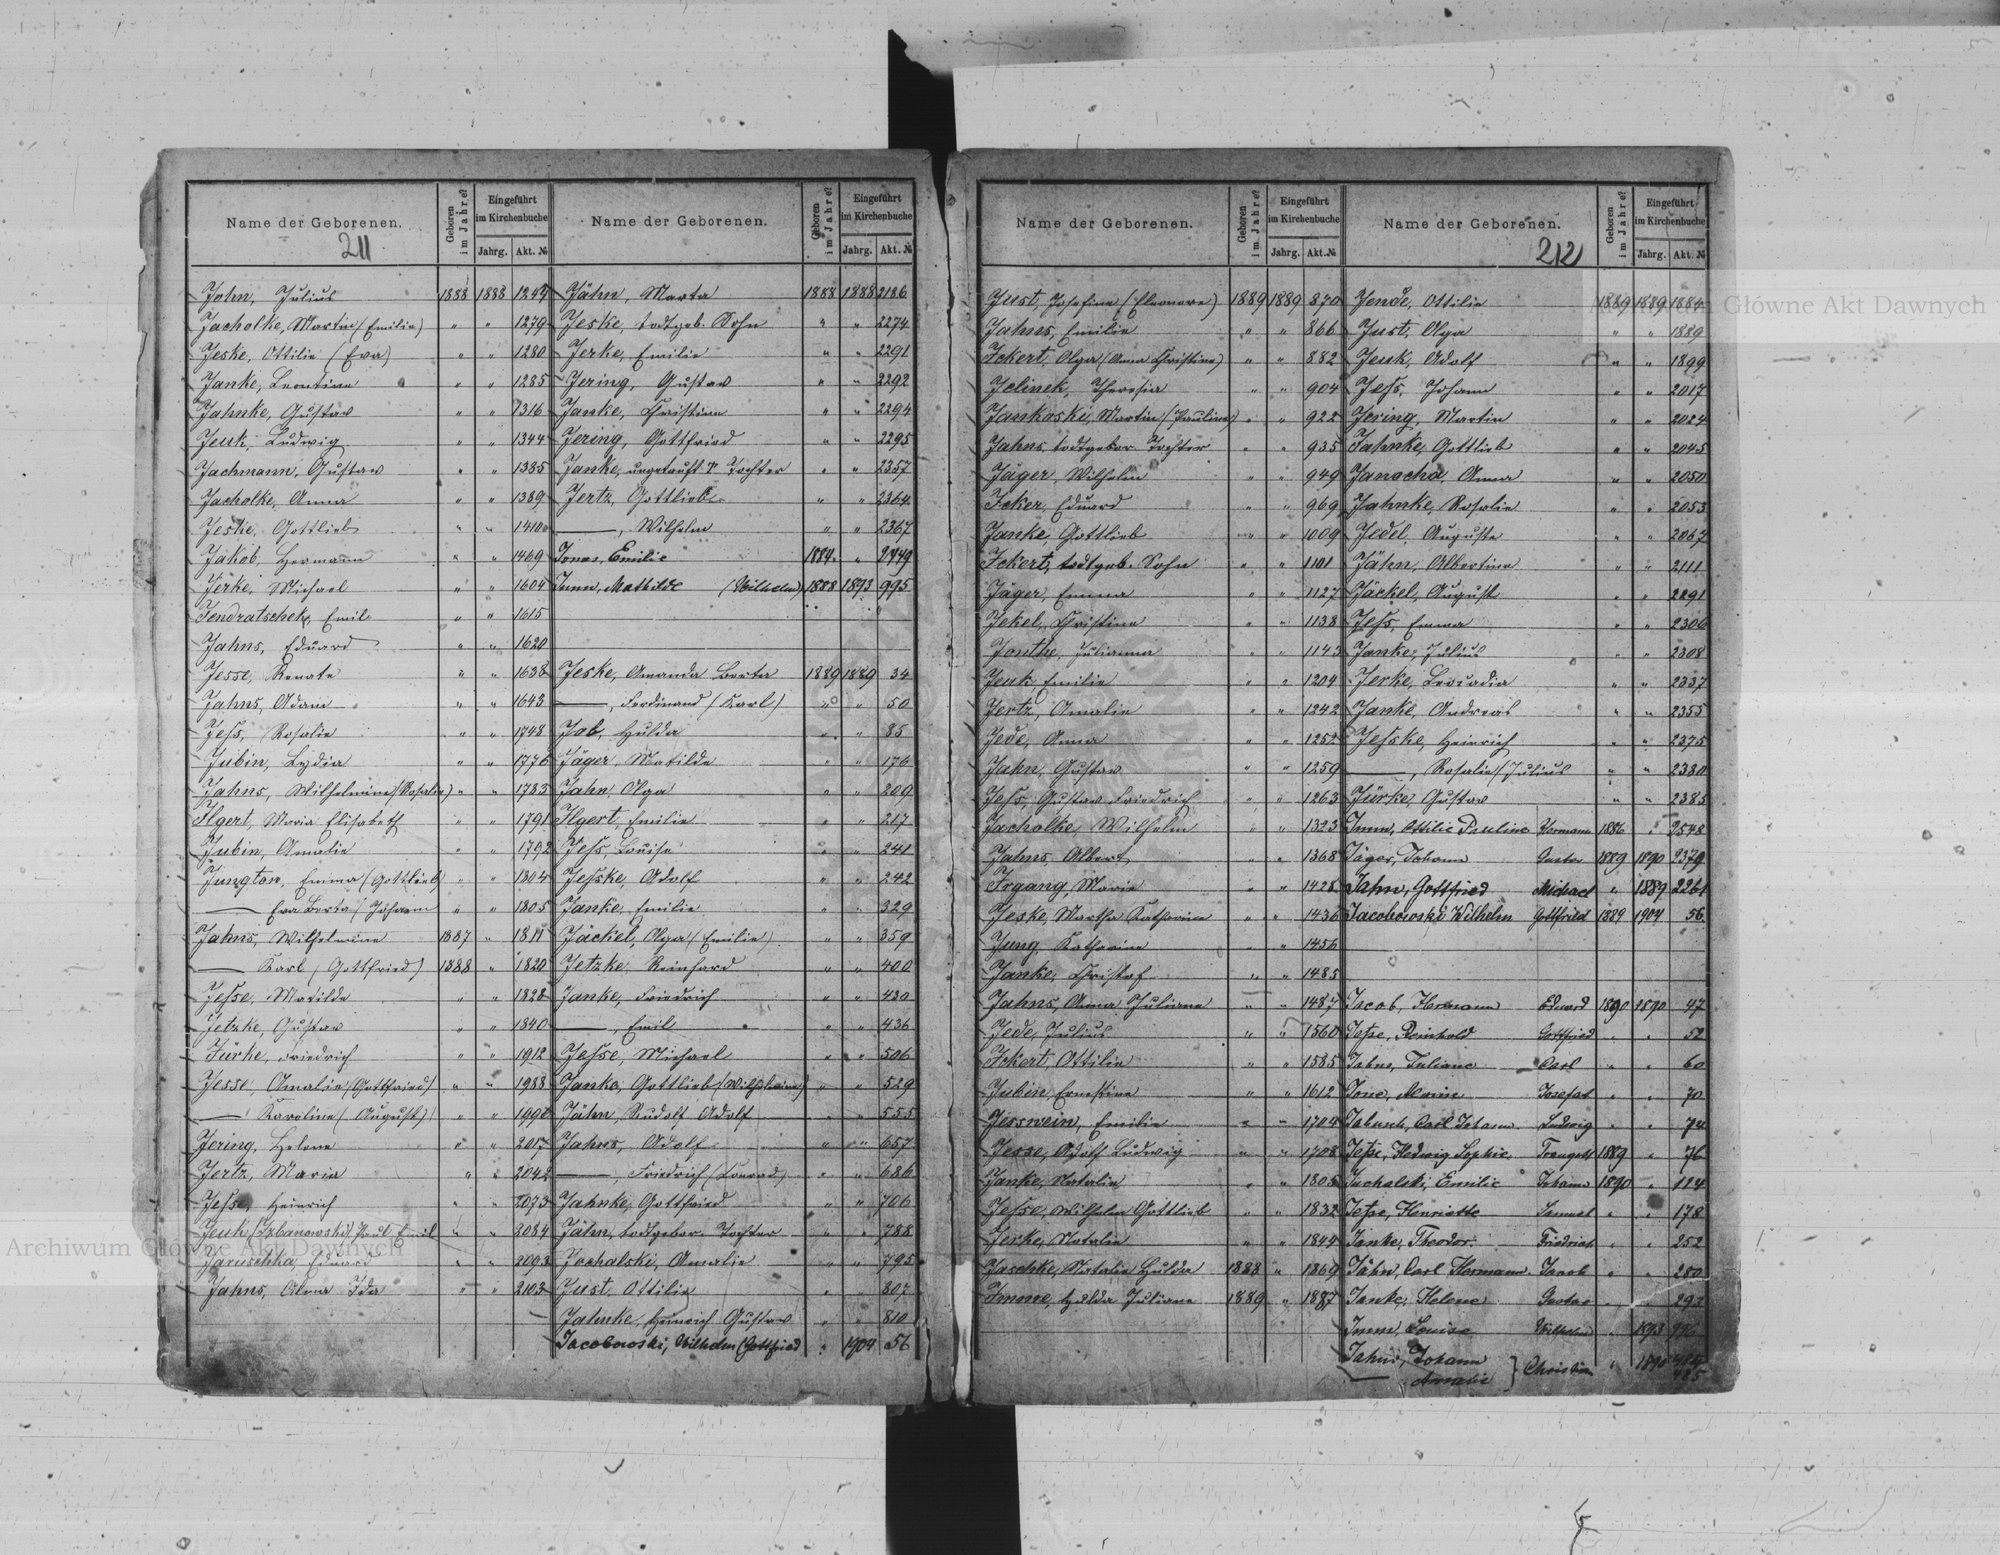 Name der Geborenen.
211
Geboren im Jahre?
Eingeführt im Kirchenbuche
Jahrg.
Akt. №
John, Julius 1888 1888 1249
Jacholke, Martin (Emilie) " " 1279
Jeske, Ottilie (Eva) " " 1280
Janke, Leontine " " 1285
Jahnke, Gustav " " 1316
Jeuk, Ludwig " " 1344
Jachmann, Gustav " " 1385
Jacholke, Anna " " 1389
Jeske, Gottlieb " " 1410
Jakob, Hermann " " 1469
Jerke, Michael " " 1604
Jendratschek, Emil " " 1615
Jahns, Eduard " " 1620
Jesse, Renate " " 1638
Jahns, Adam " " 1643
Jeſs, Rosalie " " 1748
Jubin, Lydia " " 1776
Jahns, Wilhelmine (Rosalie) " " 1783
Ilgert, Maria Elisabeth " " 1791
Jubin, Amalie " " 1792
Jungton, Emma (Gottlieb) " " 1804
—— Eva Berta (Johann " " 1805
Jahns, Wilhelmine 1887 " 1811
—— Karl (Gottfried) 1888 " 1820
Jeſse, Matilde " " 1828
Jetzke, Gustav " " 1840
Jürke, Friedrich " " 1912
Jesse, Amalie (Gottfried) " " 1988
—— Karoline (August) " "
Jering, Helene " " 2017
Jertz, Maria " " 2042
Jeſse, Heinrich " " 2073
Jeuk (Urbanowski) Paul Emil " " 2084
Jaruschka, Eduard " " 2093
Jahns, Alma Ida " " 2103
Name der Geborenen.
Geboren im Jahre?
Eingeführt im Kirchenbuche
Jahrg.
Akt. №
Jähn, Marta 1888 1888 2186
Jeske, todtgeb. Sohn " " 2274
Jerke, Emilie " " 2291
Jering, Gustav " " 2292
Janke, Christine " " 2294
Jering, Gottfried " " 2295
Janke, ungetauft Tochter " " 2357
Jertz, Gottlieb " " 2364
——, Wilhelm " " 2367
Jonas, Emilie 1884 " 2449
Imm, Mathilde (Wilhelm) 1888 1893 995
Jeske, Amanda Berta 1889 1889 34
——, Ferdinand (Karl) " " 50
Job, Hulda " " 85
Jäger, Matilde " " 176
Jahn, Olga " " 209
Ilgert, Emilie " " 217
Jeſs, Louise " " 241
Jeſske, Adolf " " 242
Janke, Emilie " " 329
Jäckel, Olga (Emilie) " " 359
Jetzke, Reinhard " " 400
Janke, Friedrich " " 430
——, Emil " " 436
Jeſse, Michael " " 506
Janke, Gottlieb (Wilhelmine) " " 529
Jähn, Rudolf Adolf " " 555
Jahns, Adolf " " 657
——, Friedrich (Konrad) " " 686
Jahnke, Gottfried " " 706
Jähn, todtgebor. Tochter " " 788
Jochalski, Amalie " " 795
Just, Ottilie " " 807
Jahnke, Heinrich Gustav " " 810
Jacobowski, Wilhelm (Gottfried " 1904 56
Name der Geborenen.
Geboren im Jahre?
Eingeführt im Kirchenbuche
Jahrg.
Akt. №
Just, Josefine (Eleonore) 1889 1889 830
Jahns, Emilie " " 866
Ickert, Olga (Anna Christine) " " 882
Jelinek, Theresia " " 904
Jankoski, Martin (Pauline) " " 922
Jahns todtgebor Tochter " " 935
Jäger, Wilhelm " " 949
Icker, Eduard " " 969
Janke, Gottlieb " " 1009
Ickert, todtgeb. Sohn " " 1101
Jäger, Emma " " 1127
Jekel, Christine " " 1138
Jonthe, Julianna " " 1143
Jeuk, Emilie " " 1204
Jertz, Amalie " " 1242
Jede, Anna " " 1252
Jahn, Gustav " " 1259
Jeſs, Gustav Friedrich " " 1263
Jacholke, Wilhelm " " 1323
Jahns Albert " " 1368
Irgang, Marie " " 1428
Jeske, Martha Katharina " " 1436
Jung, Katharina " " 1456
Janke, Christof " " 1485
Jahns, Anna Juliane " " 1487
Jede, Julius " " 1560
Ickert, Ottilie " " 1585
Jubin, Ernestine " " 1612
Jesswein, Emilie " " 1704
Jesse, Adolf Ludwig " " 1708
Janke, Natalie " " 1805
Jeſse, Wilhelm Gottlieb " " 1832
Jerke, Natalie " " 1844
Jaschke, Natalie Hulda 1888 " 1869
Imme, Hulda Juliane 1889 " 1887
Name der Geborenen.
212
Geboren im Jahre?
Eingeführt im Kirchenbuche
Jahrg.
Akt. №
Jende, Ottilie 1889 1889 1884
Just, Olga " " 1889
Jeuk, Adolf " " 1899
Jeſs, Johann " " 2017
Jering, Martin " " 2024
Jahnke, Gottlieb " " 2045
Janocha, Anna " " 2050
Jahnke, Rosalie " " 2053
Jedel, Auguste " " 2067
Jähn, Albertine " " 2111
Jäckel, August " " 2291
Jeſs, Emma " " 2306
Janke, Julius " " 2308
Jerke, Leocadia " " 2337
Janke, Andreas " " 2355
Jeſske, Heinrich " " 2375
——, Rosalie (Julius " " 2380
Jürke, Gustav " " 2385
Imm, Ottilie Pauline Hermann 1886 " 2548
Jäger, Johann Gustav 1889 1890 2379
Jahn, Gottfried Michael " 1889 2261
Jacobowski Wilhelm Gottfried 1889 1904 56
Jacob, Hermann Eduard 1890 1890 47
Jeſse, Reinhold Gottfried " " 52
Jahns, Juliane Carl " " 60
Marie Josefat " " 70
Carl Johann Ludwig " " 74
Jeſse, Hedwig Sophie Traugott 1889 " 76
Juchalski, Emilie Johann 1890 " 114
Jeſse, Henriette Samuel " " 178
Janke, Theodor Friedrich " " 252
Jähn, Carl Hermann Jacob " " 280
Janke, Helene Gustav " " 293
Imm, Louise Wilhelm " 1893
Jahns, Johann } Christian " 1890 484
—— Amalie 485
Archiwum Główne Akt Dawnych
Archiwum Główne Akt Dawnych